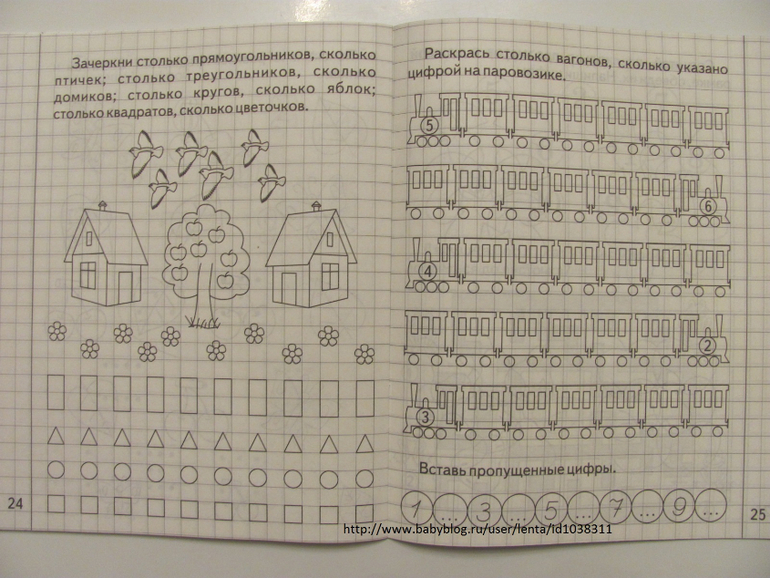 Зачеркни столько прямоугольников, сколько
птичек; столько треугольников, сколько
домиков; столько кругов, сколько яблок;
столько квадратов, сколько цветочков.
24
Раскрась столько вагонов, сколько указано
цифрой на паровозике.
5
6
4
2
3
Вставь пропущенные цифры.
1 ... 3 ... 5 ... 7 ... 9 ...
25
http://www.babyblog.ru/user/lenta/id1038311